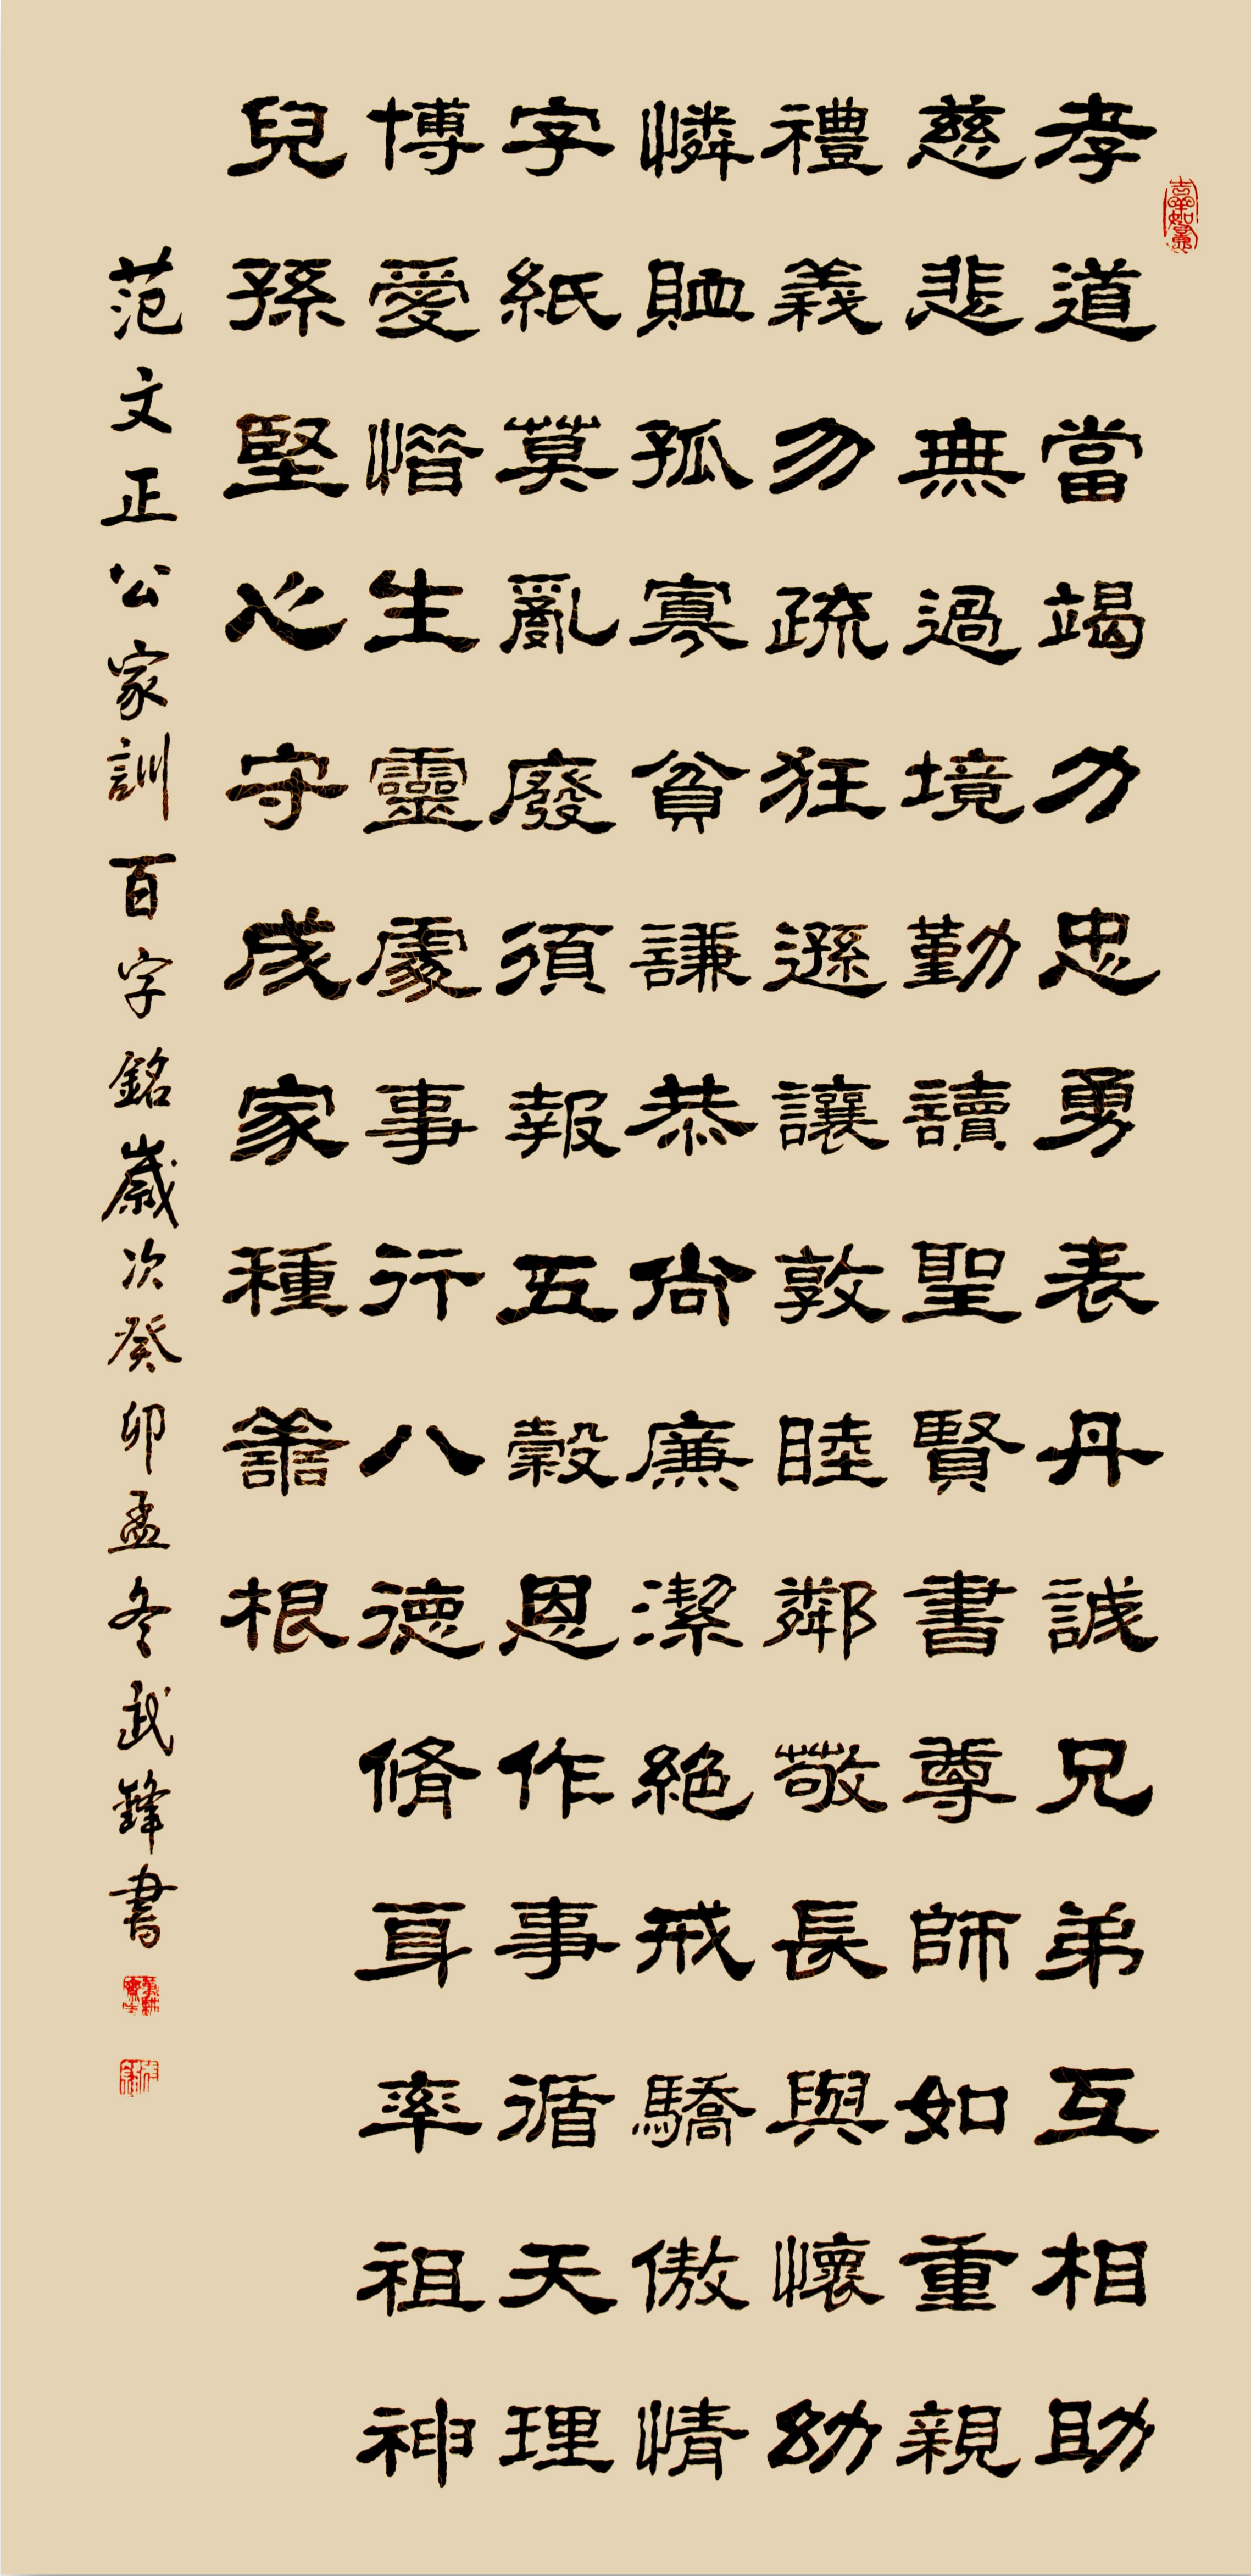 孝道當竭力忠勇表丹誠兄弟互相助
慈悲無過境勤讀聖賢書尊師如重親
禮義勿疏狂遜讓敦睦鄰敬長與懷幼
憐恤孤寡貧謙恭尚廉潔絕戒驕傲情
字紙莫亂廢須報五穀恩作事循天理
博愛惜生靈處事行八德脩身率祖神
兒孫堅心守成家種善根
范文正公家訓百字銘歲次癸卯孟冬武鋒書